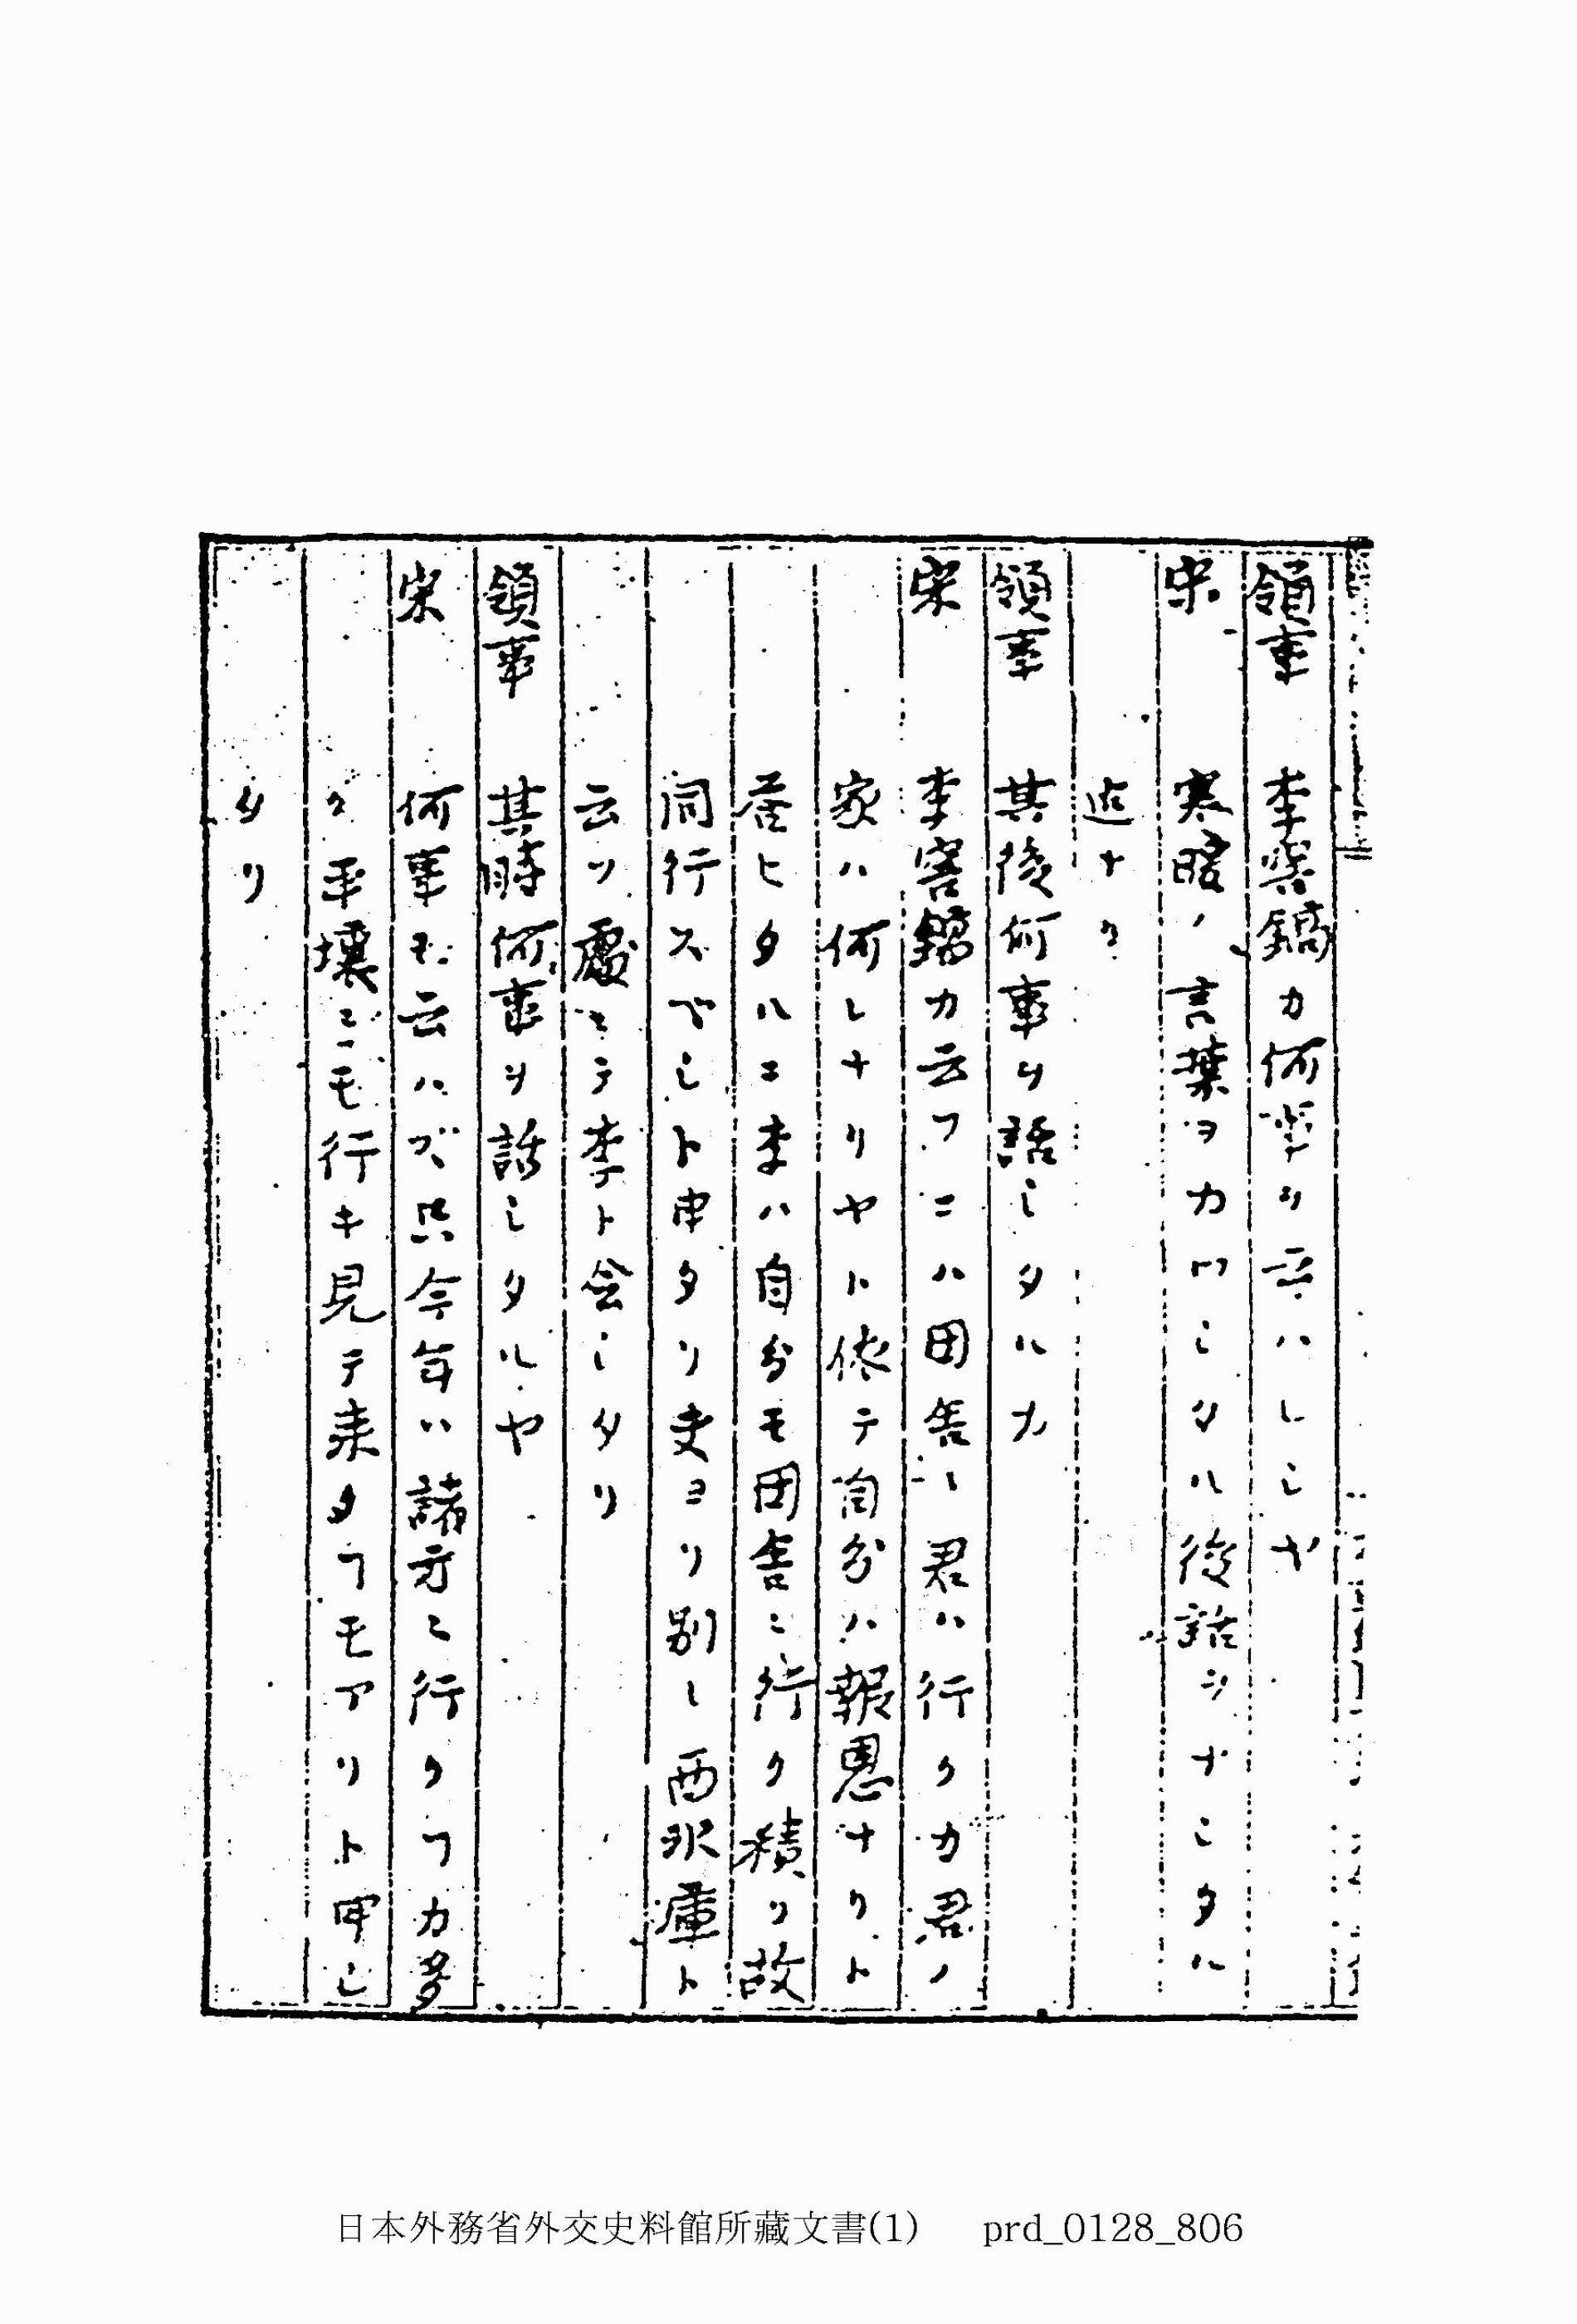 領事 李容鎬カ何事ヲ云ハレシヤ
宋 寒暖ノ言葉ヲカワシタル後話シナシタルハ
迄ナク
領事 其後何事ヲ話シタルカ
宋 李容鎬カ云フニハ田舎ヘ君ハ行クカ君ノ
家ハ何レナリヤト依テ自分ハ報恩ナリト
答ヒタルニ李ハ自分モ田舎ニ行ク積リ故
同行スベシト申タリ夫ヨリ別レ西氷庫ト
云ツ處ニテ李ト会シタリ
領事 其時何事ヲ話シタルヤ
宋 何事モ云ハズ只今年ハ諸方ニ行クフカ多
ク平壌ニモ行キ見テ来タフモアリト申シ
タリ
日本外務省外交史料館所藏文書(1) prd_0128_806